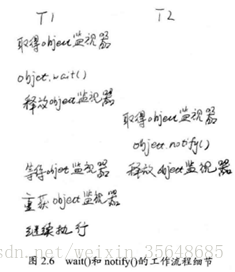 T1 T2
取得object监视器
object.wait()
释放object监视器
取得object监视器
object.notify()
等待object监视器 释放object监视器
重获object监视器
继续执行
图 2.6 wait()和 notify()的工作流程细节
sdn.net/weixin_35648685